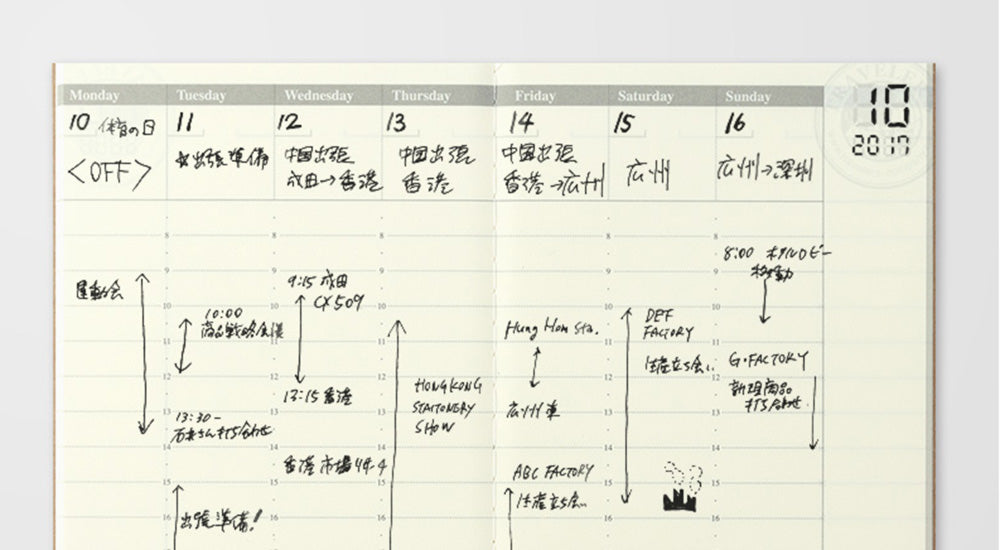 Monday Tuesday Wednesday Thursday Friday Saturday Sunday
10
2017
10 体育の日
<OFF>
11
出張準備
12
中国出張
成田→香港
13
中国出張
香港
14
中国出張
香港→広州
15
広州
16
広州→深圳
8 9 10 11 12 13 14 15 16
運動会
10:00
商品戦略会議
13:30-
打ち合わせ
出張準備!
9:15 成田
CX509
13:15 香港
香港市場リサーチ
HONGKONG
STAITONERY
SHOW
Hung Hom Sta.
広州東
ABC FACTORY
生産立ち会い
DEF
FACTORY
生産立ち会い
8:00 ホテルロビー
移動
G.FACTORY
新理商品
打ち合わせ